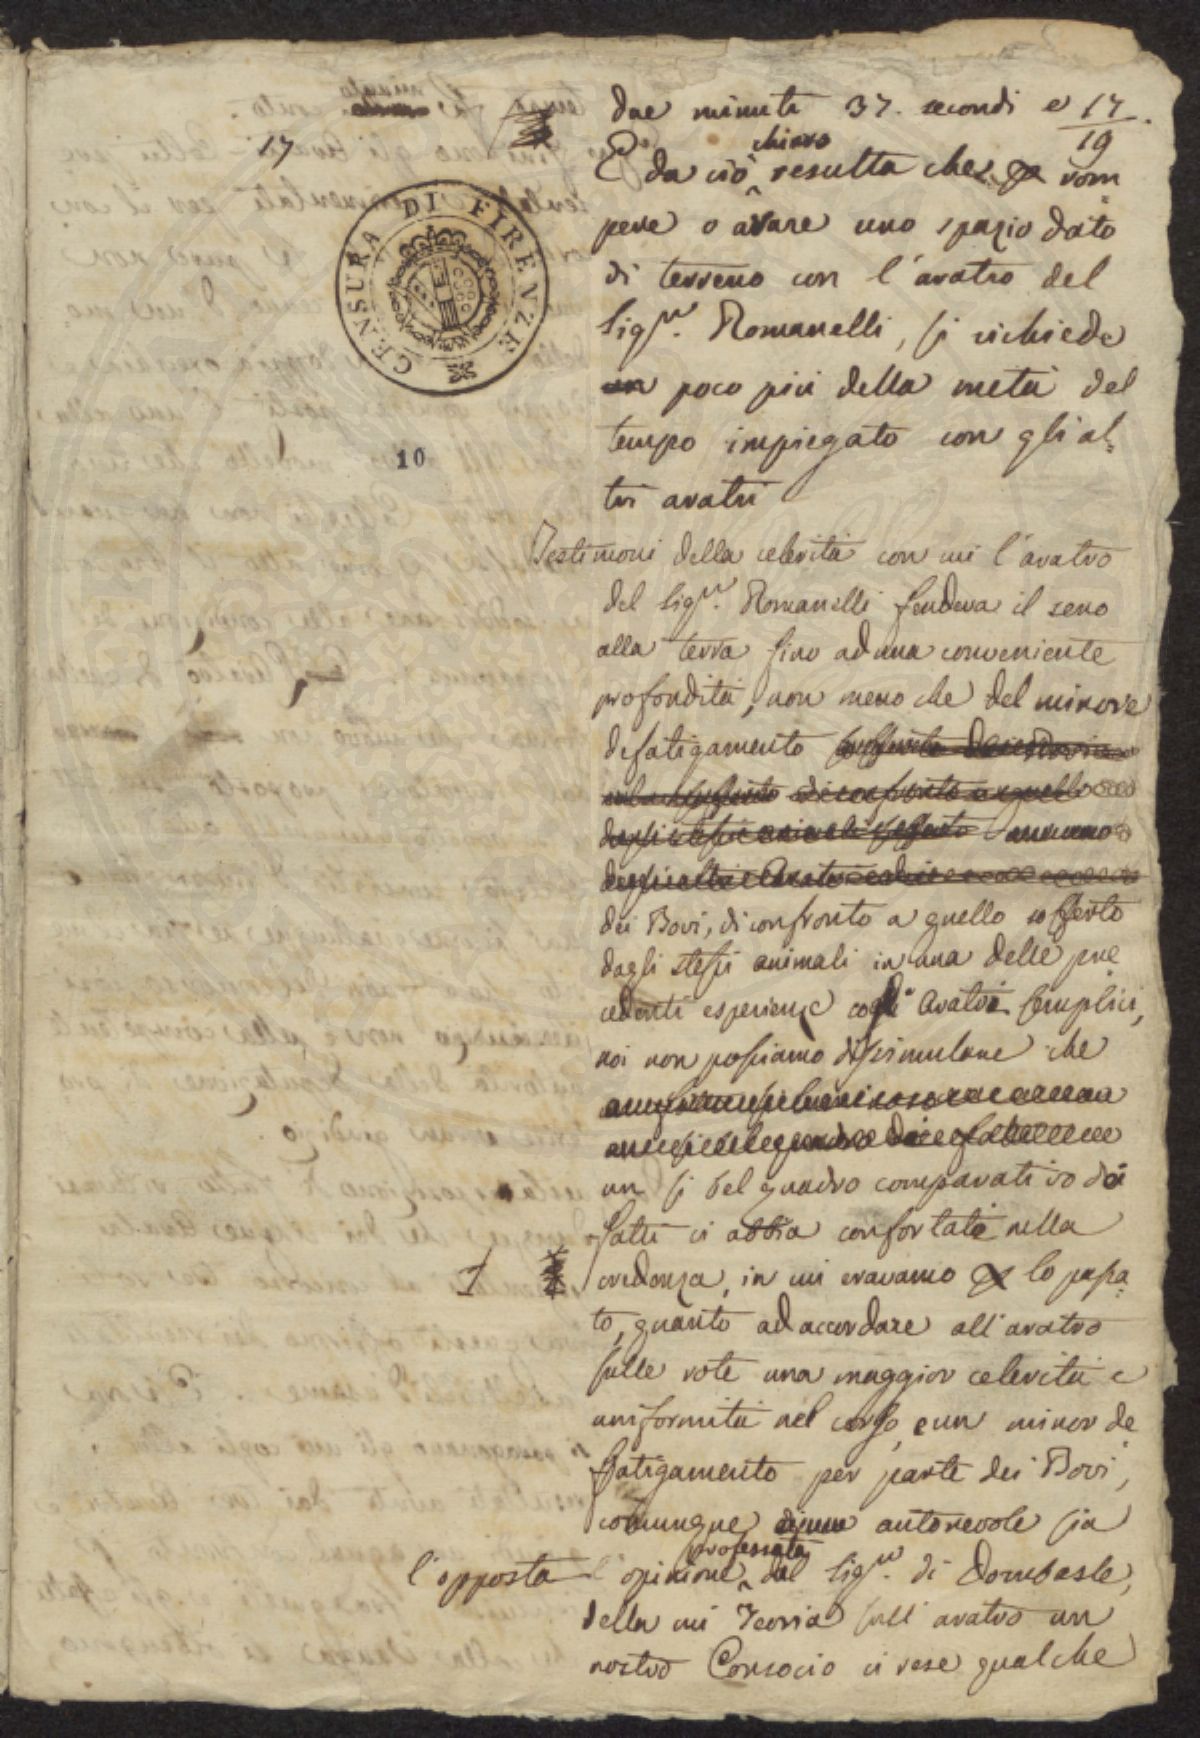 due minuti 37. secondi e 17/19.
17
E da ciò chiaro resulta che rom
CENSURA DI FIRENZE
pere o arare uno spazio dato
di terreno con l'aratro del
Sigr. Romanelli, si richiede
un poco più della metà del
tempo impiegato con gli al=
10
tri aratri
Testimoni della celerità con cui l'aratro
del Sigr. Romanelli fendeva il seno
alla terra fino ad una conveniente
profondità, non meno che del minore
defatigamento sofferto
di confronto a quello
degli stessi animali
degli altri Aratri
dei Bovi, di confronto a quello sofferto
dagli stessi animali in una delle pre
cedenti esperienze cogli Aratri semplici,
noi non possiamo dissimulare che
un si bel quadro comparativo di
fatti ci abbia confortati nella
1
credenza, in cui eravamo lo passa=
to, quanto ad accordare all'aratro
sulle rote una maggior celerità e
uniformità nel corso, e un minor de
fatigamento per parte dei Bovi,
comunque autorevole sia
l'opposta opinione professata dal Sigr. di Dombasle,
della cui Teoria sull'aratro un
nostro Consocio ci rese qualche